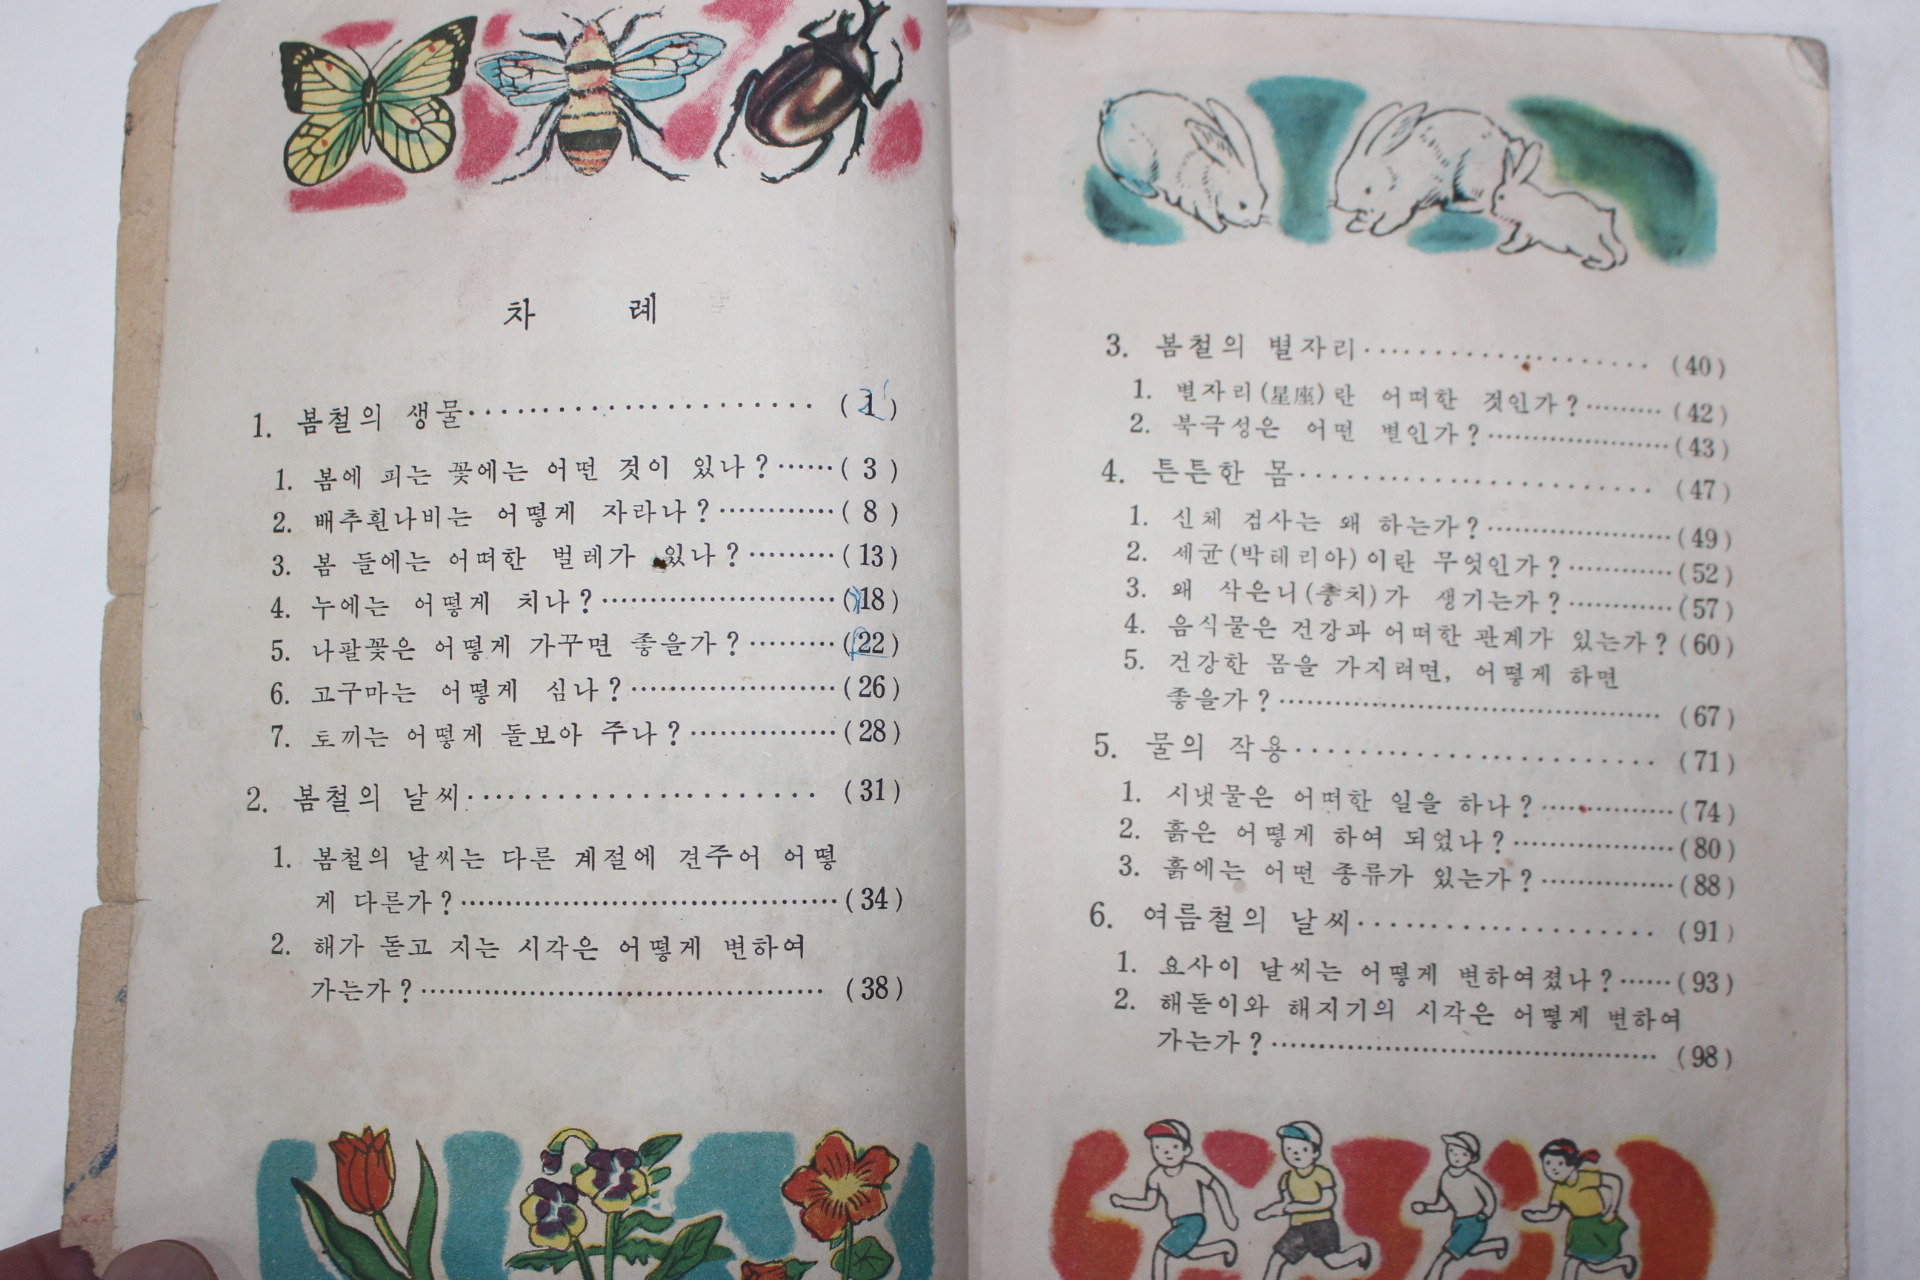 차 례
1. 봄철의 생물······················ ( 1 )
1. 봄에 피는 꽃에는 어떤 것이 있나?······( 3 )
2. 배추흰나비는 어떻게 자라나?············( 8 )
3. 봄 들에는 어떠한 벌레가 있나?·········(13)
4. 누에는 어떻게 치나?························(18)
5. 나팔꽃은 어떻게 가꾸면 좋을가?·········(22)
6. 고구마는 어떻게 심나?·····················(26)
7. 토끼는 어떻게 돌보아 주나?···············(28)
2. 봄철의 날씨······················ (31)
1. 봄철의 날씨는 다른 계절에 견주어 어떻
게 다른가?·······································(34)
2. 해가 돋고 지는 시각은 어떻게 변하여
가는가?·········································· (38)
3. 봄철의 별자리···················· (40)
1. 별자리(星座)란 어떠한 것인가?·········(42)
2. 북극성은 어떤 별인가?·····················(43)
4. 튼튼한 몸························· (47)
1. 신체 검사는 왜 하는가?·····················(49)
2. 세균(박테리아)이란 무엇인가?············(52)
3. 왜 삭은니(충치)가 생기는가?············(57)
4. 음식물은 건강과 어떠한 관계가 있는가?(60)
5. 건강한 몸을 가지려면, 어떻게 하면
좋을가?·········································· (67)
5. 물의 작용························· (71)
1. 시냇물은 어떠한 일을 하나?···············(74)
2. 흙은 어떻게 하여 되었나?··················(80)
3. 흙에는 어떤 종류가 있는가?···············(88)
6. 여름철의 날씨····················· (91)
1. 요사이 날씨는 어떻게 변하여졌나?······(93)
2. 해돋이와 해지기의 시각은 어떻게 변하여
가는가?·········································· (98)